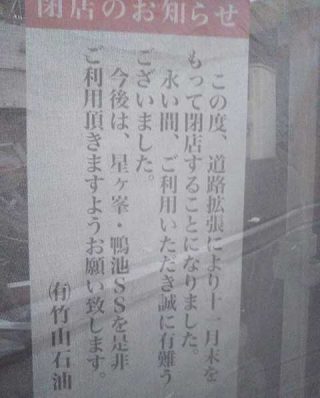 閉店のお知らせ
この度、道路拡張により十一月末を
もって閉店することになりました。
永い間、ご利用いただき誠に有難う
ございました。
今後は、星ヶ峯・鴨池SSを是非
ご利用頂きますようお願い致します。
㈲竹山石油